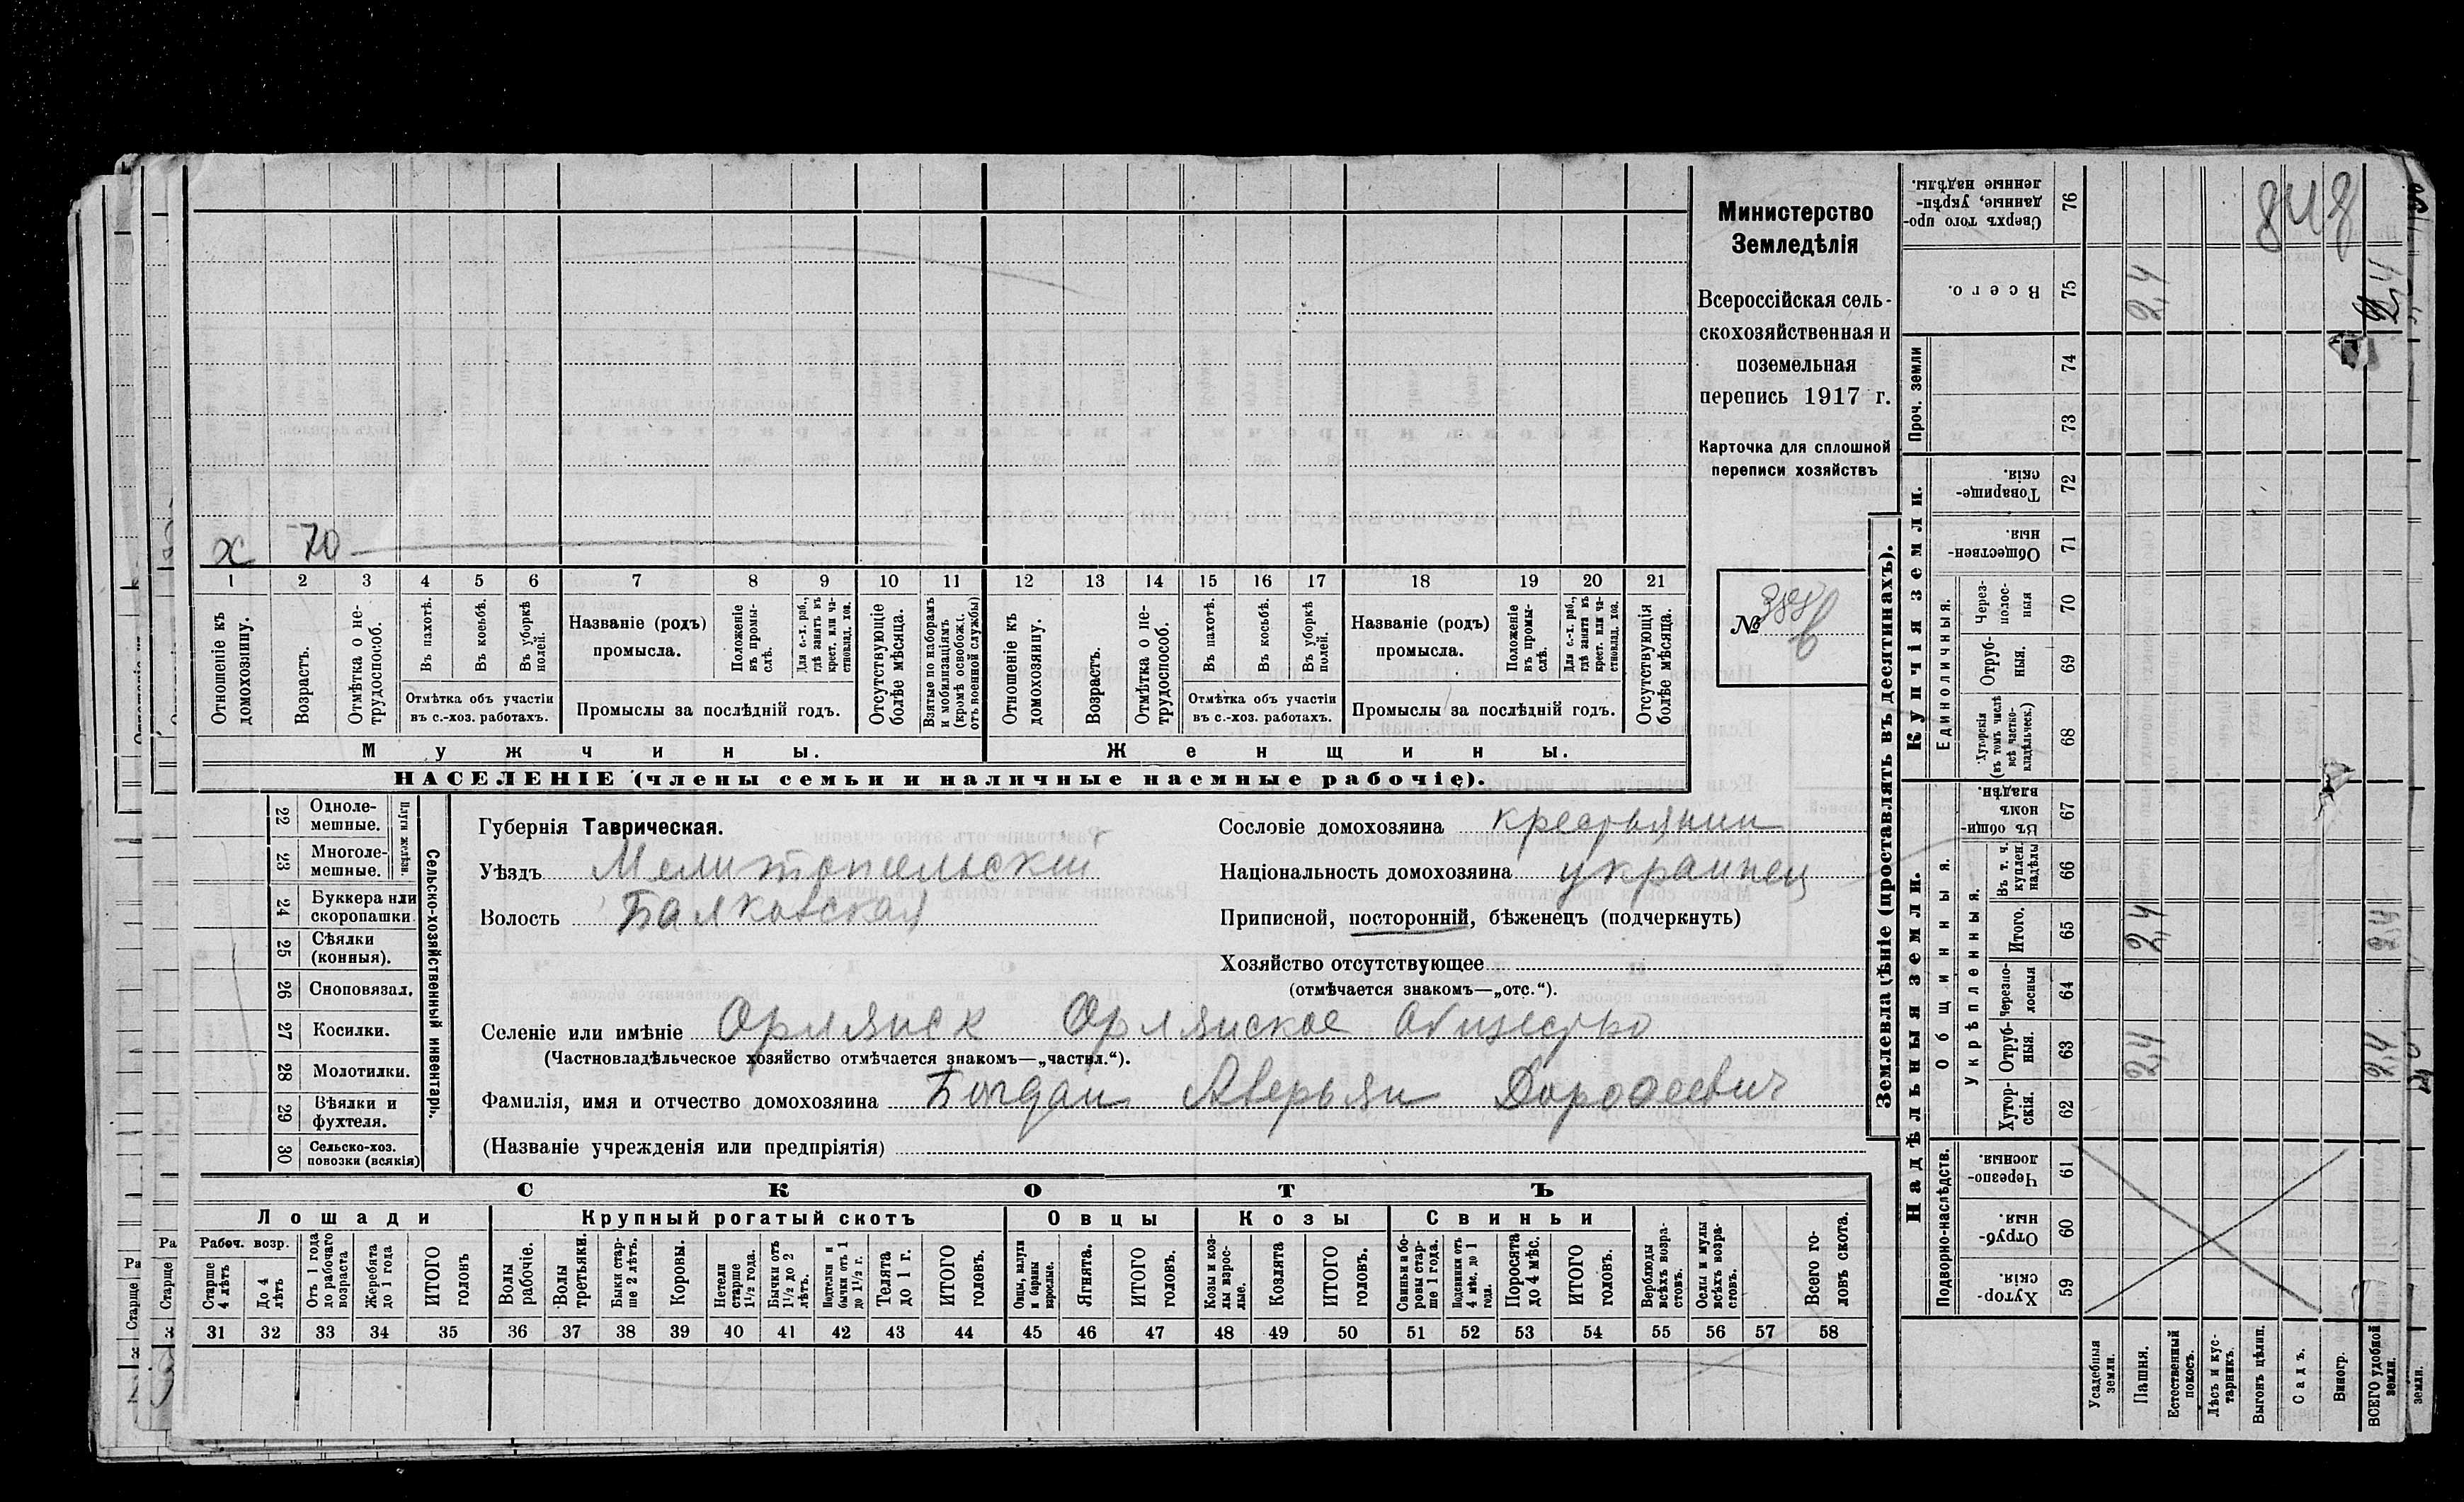 Министерство
Земледѣлія
Всероссійская сель-
скохозяйственная и
поземельная
перепись 1917 г.
Карточка для сплошной
переписи хозяйствъ
№
х 70
1 2 3 4 5 6 7 8 9 10 11 12 13 14 15 16 17 18 19 20 21
Отношеніе къ домохозяину.
Возрастъ.
Отмѣтка о не-трудоспособ.
Въ пахотѣ.
Въ косьбѣ.
Въ уборкѣ полей.
Отмѣтка объ участіи
въ с.-хоз. работахъ.
Названіе (родъ)
промысла.
Положеніе въ промы-слѣ.
Для с.-х. раб., гдѣ занятъ въ крест. или ча-стновлад. хоз.
Промыслы за послѣдній годъ.
Отсутствующіе болѣе мѣсяца.
Взятые по наборамъ и мобилизаціямъ (кромѣ освобожд. отъ военной службы)
Отношеніе къ домохозяину.
Возрастъ.
Отмѣтка о не-трудоспособ.
Въ пахотѣ.
Въ косьбѣ.
Въ уборкѣ полей.
Отмѣтка объ участіи
въ с.-хоз. работахъ.
Названіе (родъ)
промысла.
Положеніе въ промы-слѣ.
Для с.-х. раб., гдѣ занята въ крест. или ча-стновлад. хоз.
Промыслы за послѣдній годъ.
Отсутствующія болѣе мѣсяца.
Мужчины.
Женщины.
НАСЕЛЕНІЕ (члены семьи и наличные наемные рабочіе).
Сельско-хозяйственный инвентарь.
Плуги желѣзн.
22 Одноле-мешные.
23 Многоле-мешные.
24 Буккера или скоропашки.
25 Сѣялки (конныя).
26 Сноповязал.
27 Косилки.
28 Молотилки.
29 Вѣялки и фухтеля.
30 Сельско-хоз. повозки (всякія)
Губернія Таврическая.
Уѣздъ Мелитопольскій
Волость Балковская
Сословіе домохозяина крестьянин
Національность домохозяина украинец
Приписной, посторонній, бѣженецъ (подчеркнуть)
Хозяйство отсутствующее
(отмѣчается знакомъ—„отс.“).
Селеніе или имѣніе Орлянск Орлянское Общество
(Частновладѣльческое хозяйство отмѣчается знакомъ—„частвл.“).
Фамилія, имя и отчество домохозяина Богдан Аверьян Дорофеевич
(Названіе учрежденія или предпріятія)
СКОТЪ
Лошади
Крупный рогатый скотъ
Овцы
Козы
Свиньи
Рабоч. возр.
Старше 4 лѣтъ
До 4 лѣтъ
Отъ 1 года до рабочаго возраста
Жеребята до 1 года
ИТОГО головъ
Волы рабочіе.
Волы третьяки.
Быки стар-ше 2 лѣтъ.
Коровы.
Нетели старше 1½ года.
Бычки отъ 1½ до 2 лѣтъ.
Подтелки и бычки отъ 1 до 1½ г.
Телята до 1 г.
ИТОГО головъ.
Овцы, валухи и бараны взрослые.
Ягнята.
ИТОГО головъ.
Козы и коз-лы взрос-лые.
Козлята
ИТОГО головъ.
Свиньи и бо-ровы стар-ше 1 года.
Подсвинки отъ 4 мѣс. до 1 года.
Поросята до 4 мѣс.
ИТОГО головъ.
Верблюды всѣхъ возра-стовъ.
Ослы и мулы всѣхъ возра-стовъ.
Всего го-ловъ скота.
31 32 33 34 35 36 37 38 39 40 41 42 43 44 45 46 47 48 49 50 51 52 53 54 55 56 57 58
Землевладѣніе (проставлять въ десятинахъ).
Надѣльныя земли.
Купчія земли.
Подворно-наслѣдств.
Общинныя.
Укрѣпленныя.
Единоличныя.
Проч. земли
Сверхъ того про-данные, укрѣп-ленные надѣлы. 76
Всего. 75 2,4
74
73
Товарище-скія. 72
Обществен-ныя. 71
Через-полос-ныя 70
Отруб-ныя. 69
Хуторскія (въ томъ числѣ всѣ частно-владѣльческ.) 68
Въ общин-номъ владѣн. 67
Въ т. ч. куплен. надѣлы 66
Итого. 65 2,4
Черезпо-лосныя 64
Отруб-ныя. 63 2,4
Хутор-скія. 62
Черезпо-лосныя. 61
Отруб-ныя 60
Хутор-скія. 59
Усадебныя земли.
Пашня.
Естественный покосъ.
Лѣсъ и кус-тарникъ.
Выгонъ цѣлин.
Садъ.
Виногр.
ВСЕГО удобной земли.
2,4
2,4
2,4